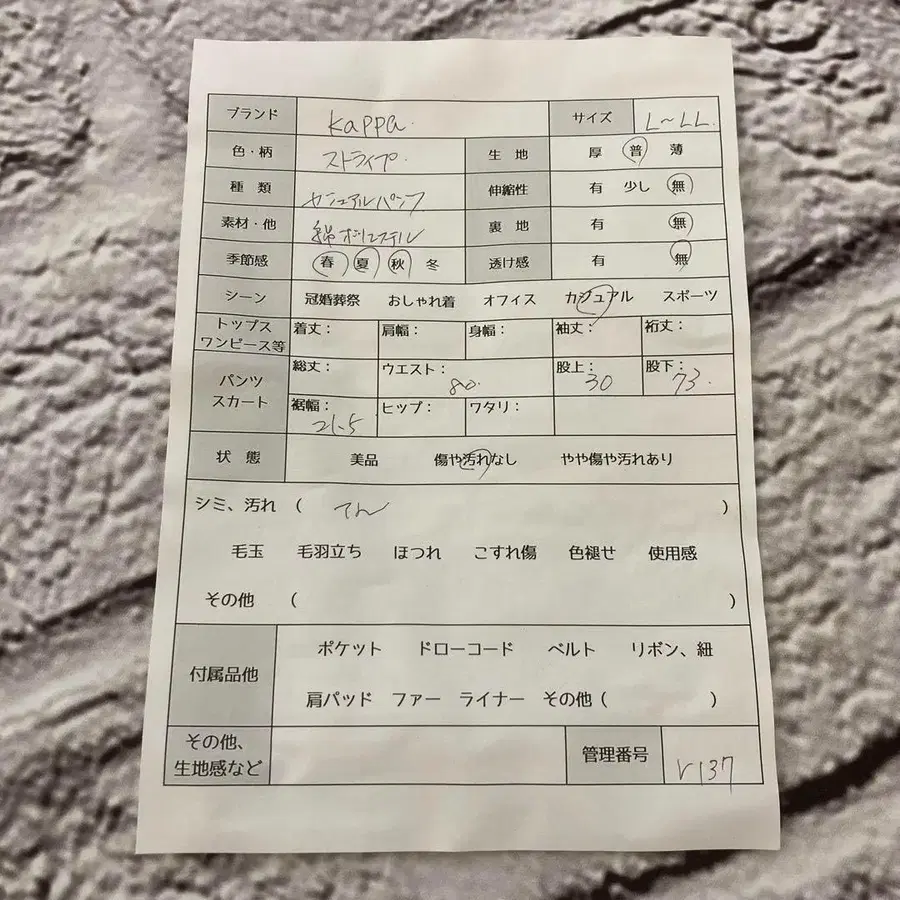 ブランド Kappa. サイズ L～LL.
色・柄 ストライプ. 生地 厚 普 薄
種類 カジュアルパンツ 伸縮性 有 少し 無
素材・他 綿 ポリエステル 裏地 有 無
季節感 春 夏 秋 冬 透け感 有 無
シーン 冠婚葬祭 おしゃれ着 オフィス カジュアル スポーツ
トップス
ワンピース等 着丈： 肩幅： 身幅： 袖丈： 裄丈：
パンツ
スカート 総丈： ウエスト： 80. 股上： 30 股下： 73.
裾幅： 21.5 ヒップ： ワタリ：
状態 美品 傷や汚れなし やや傷や汚れあり
シミ、汚れ （ てん ）
毛玉 毛羽立ち ほつれ こすれ傷 色褪せ 使用感
その他 （ ）
付属品他 ポケット ドローコード ベルト リボン、紐
肩パッド ファー ライナー その他（ ）
その他、
生地感など 管理番号 r137